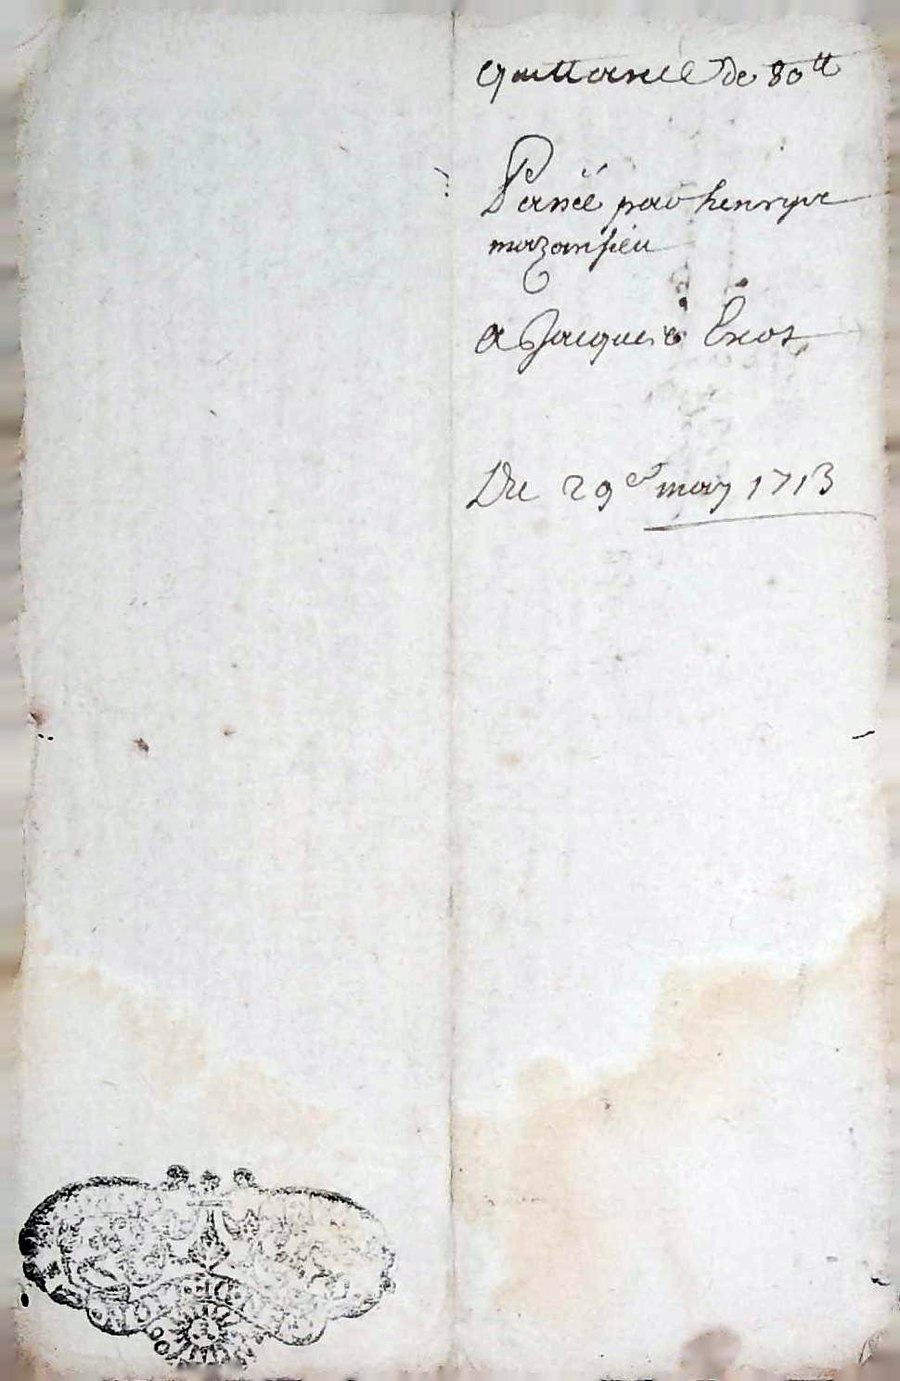 quittance de 80 tt
Passée par henrye
mazansieu
a Jacques
Du 29e may 1713